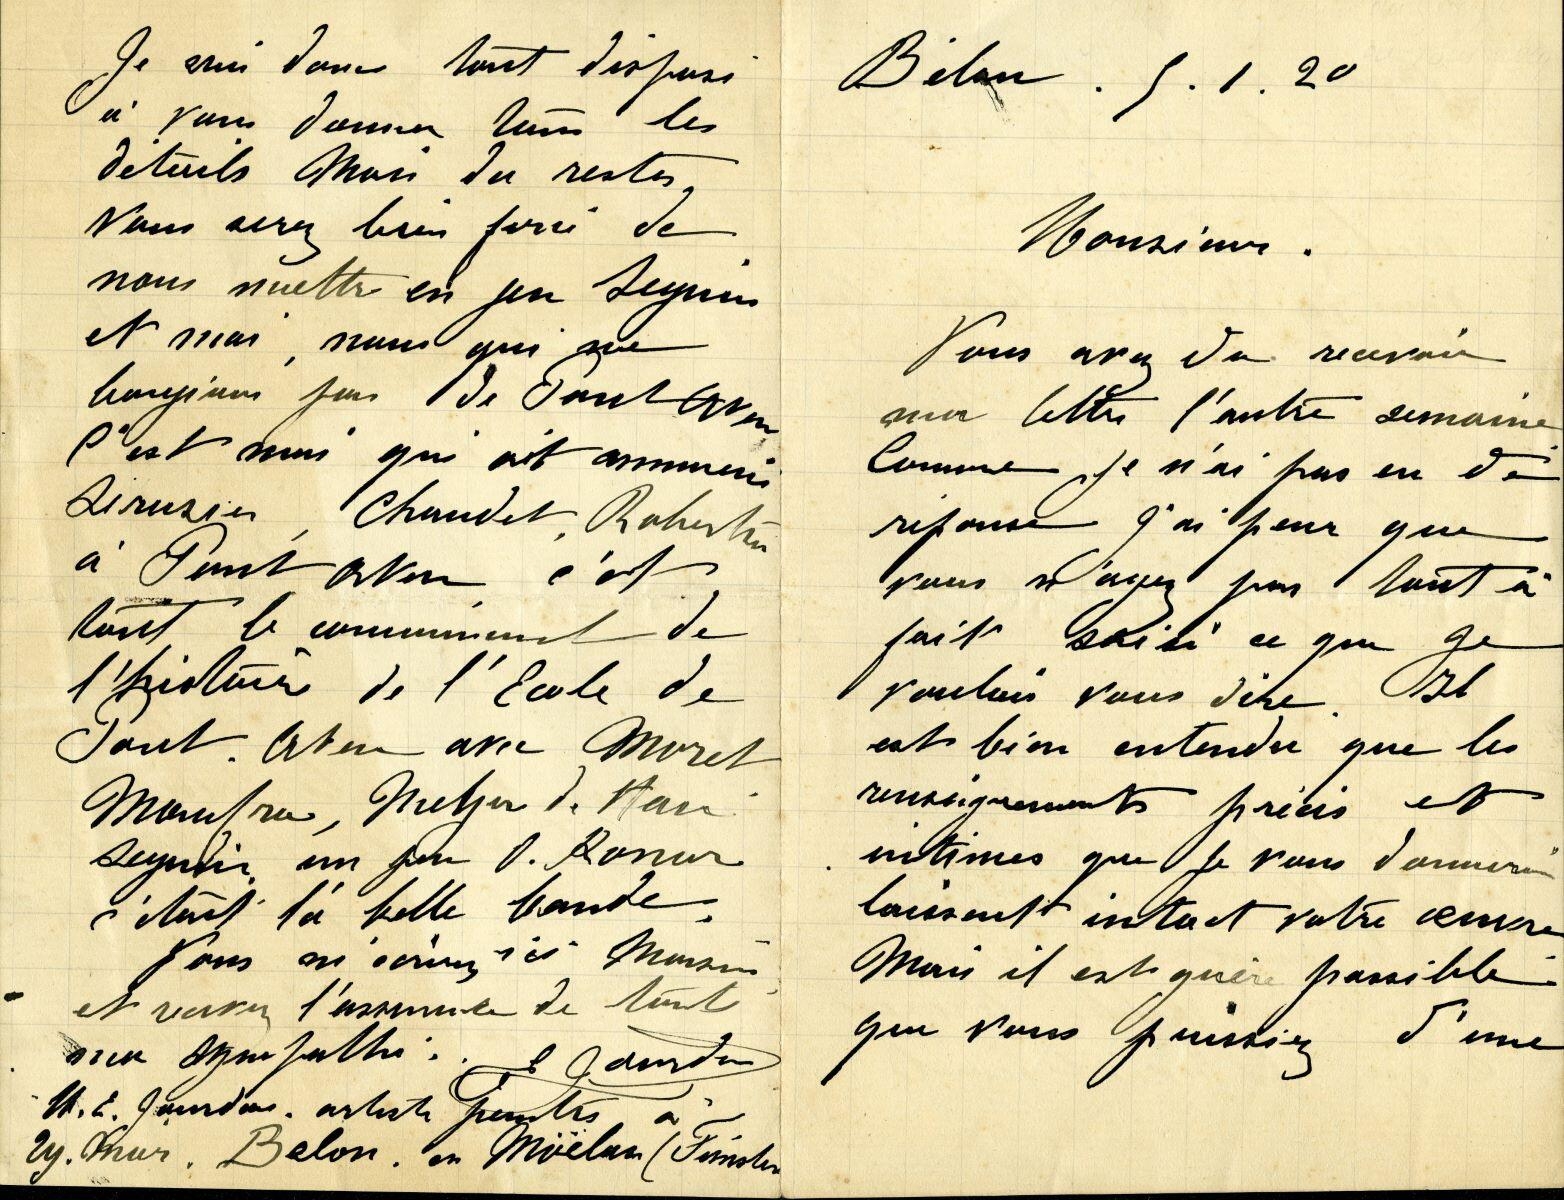 Bélon . 5 . 1 . 20
Monsieur .
Vous avez du recevoir
ma lettre l'autre semaine
Comme je n'ai pas eu de
réponse j'ai peur que
vous n'ayez pas tout à
fait saisi ce que je
voulais vous dire. Il
est bien entendu que les
renseignements précis et
intimes que je vous donnerai
laissent intact votre œuvre
Mais il est guère possible
que vous puissiez d'une
Je suis donc tout disposé
à vous donner tous les
détails Mais du reste,
Vous serez bien forcé de
nous mettre en jeu Seguin
et moi, nous qui ne
bougions pas de Pont Aven
C'est moi qui ait amené
Sérusier, Chaudet, Robertin
à Pont Aven c'est
tout le commencement de
l'histoire de l'Ecole de
Pont. Aven avec Moret
Maufra, Metjer de Haan
Seguin, un peu O. Konor
c'était la belle bande.
Vous m'écrivez ici Monsieur
et recevez l'assurance de toute
ma sympathie . . E Jourdan
M. E. Jourdan. artiste peintre à
Belon. en Moëlan (Finister